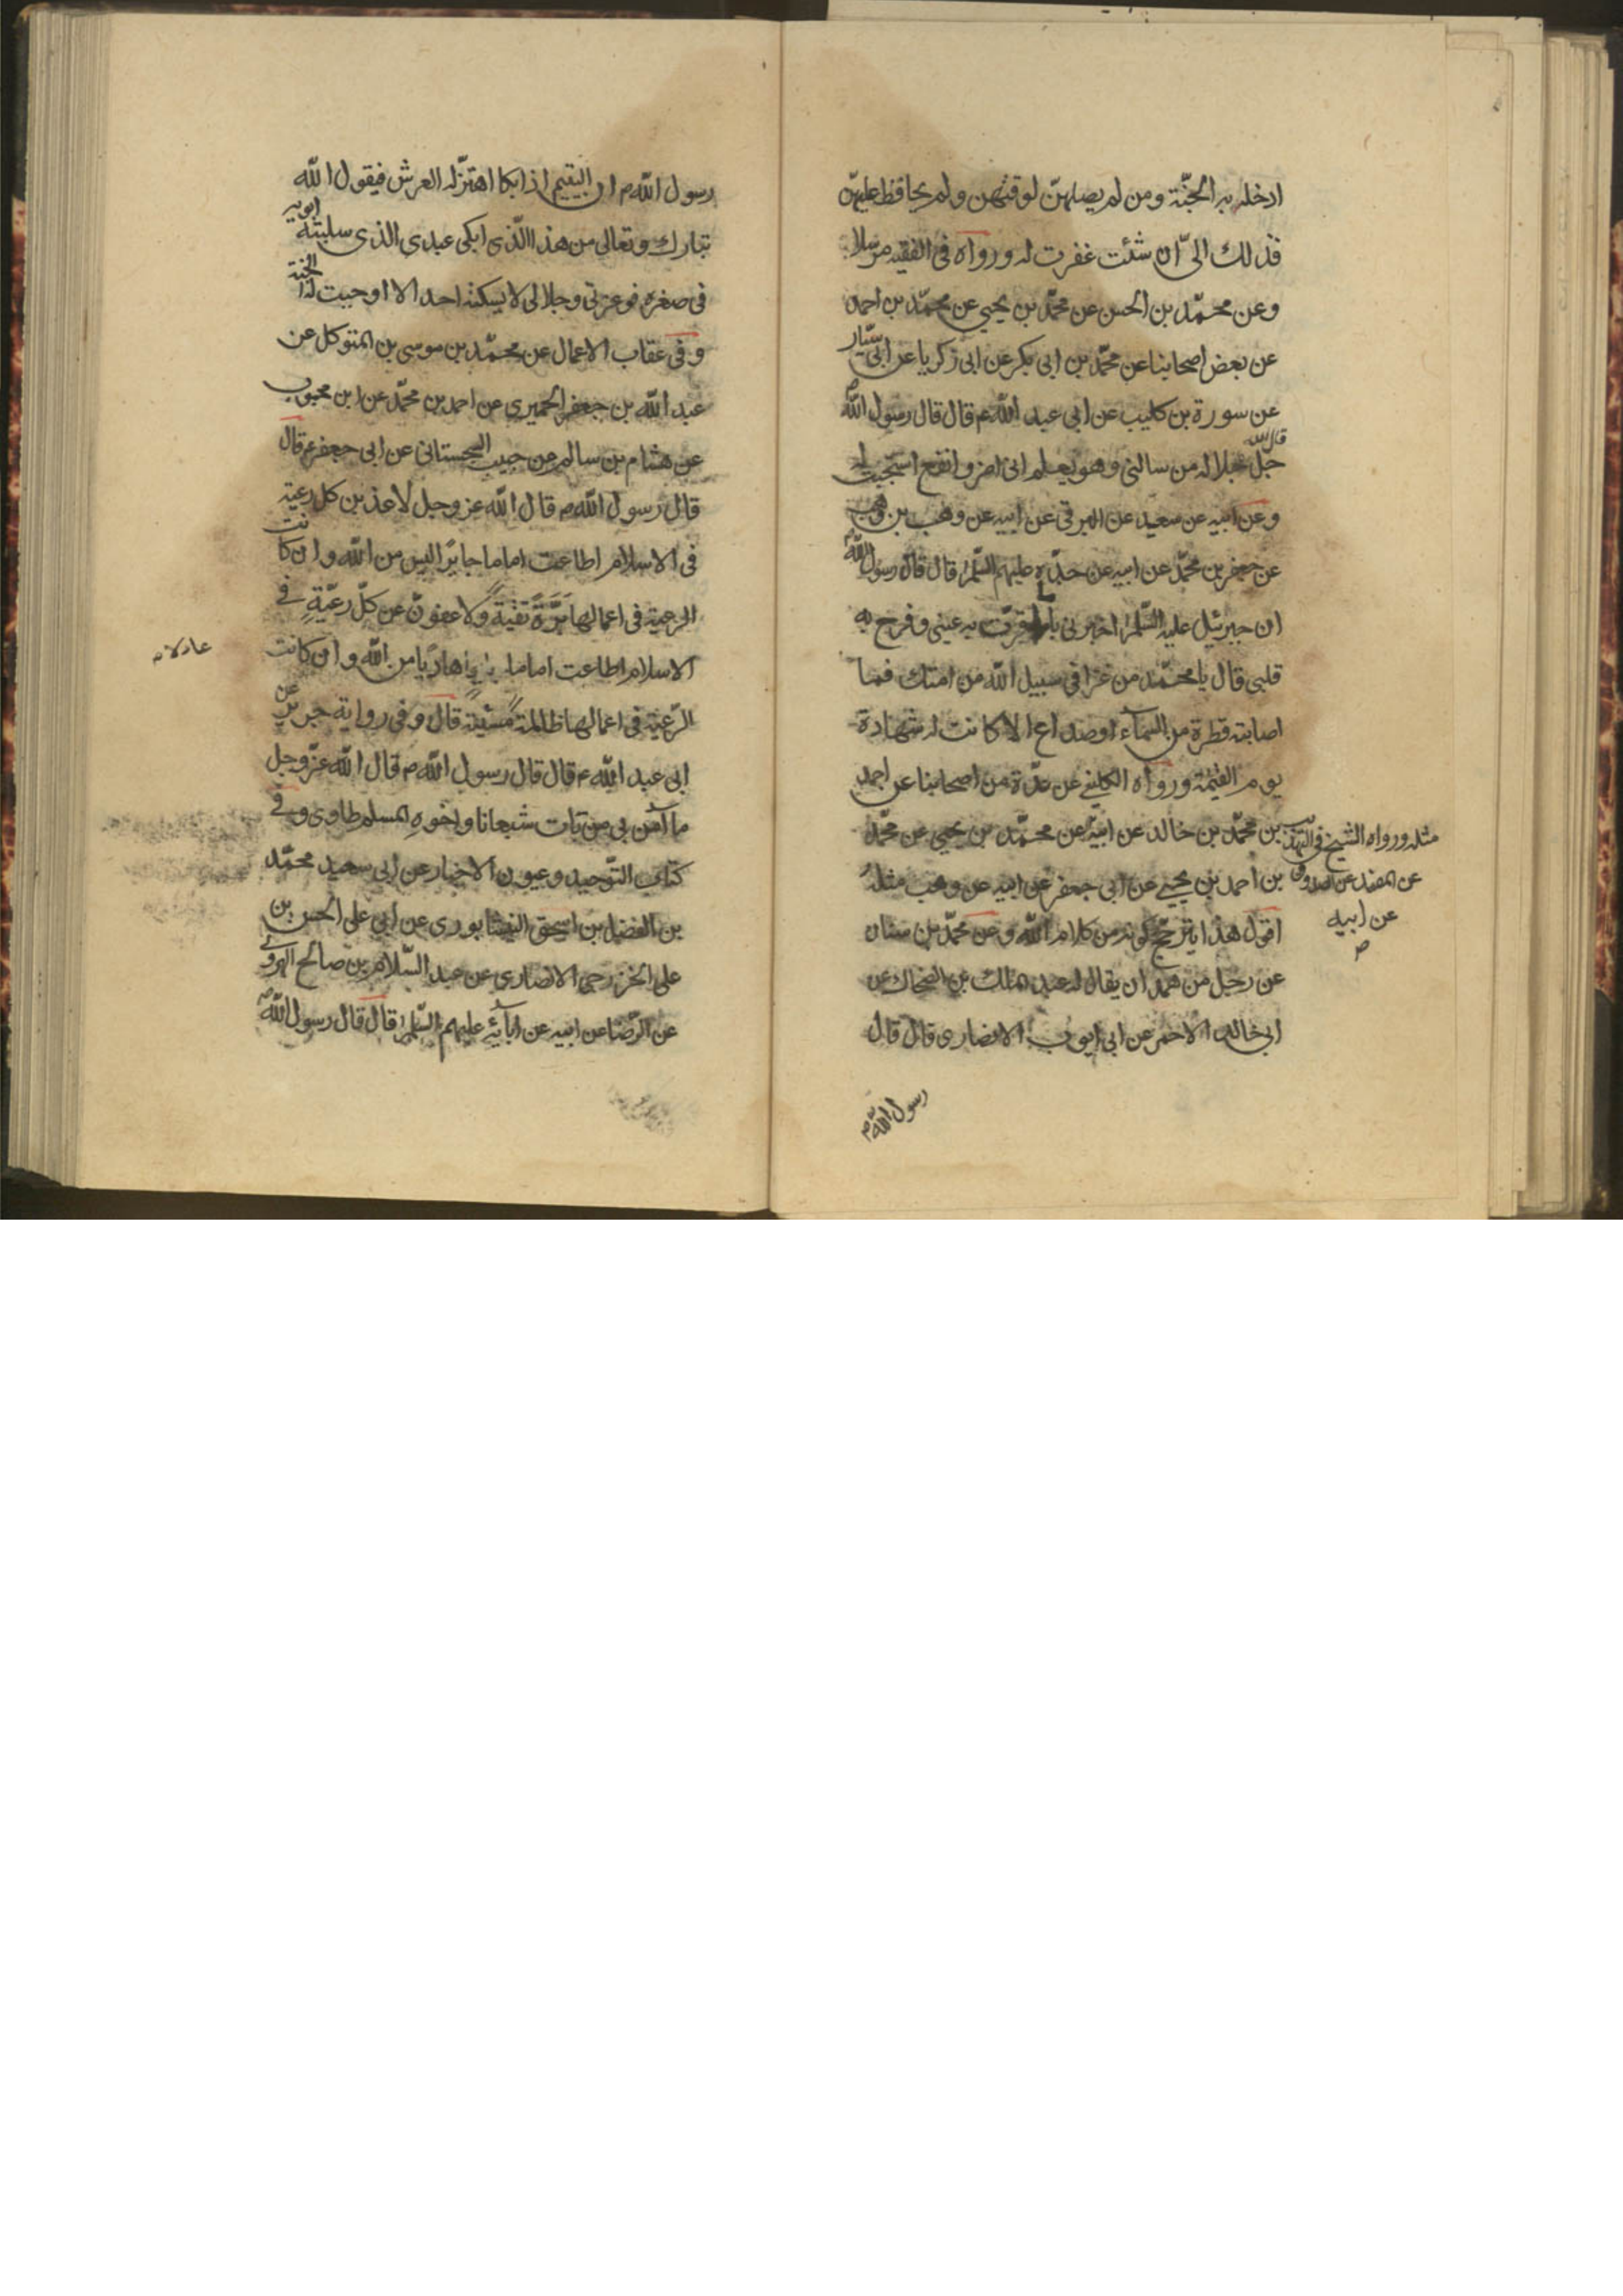 ادخله به الجنّة ومن لم يصلهنّ لوقتهن ولم يحافظ عليهنّ
فذلك الىّ ان شئت غفرت له ورواه فى الفقيه مرسلا
وعن محمّد بن الحسن عن محمّد بن يحيى عن محمّد بن احمد
عن بعض اصحابنا عن محمّد بن ابى بكر عن ابى زكريا عن ابى سيّار
عن سورة بن كليب عن ابى عبد الله ع قال قال رسول الله ص
قال الله جل جلاله من سالنى وهو يعلم انى اضر وانفع استجبت له
وعن ابيه عن سعيد عن البرقى عن ابيه عن وهب بن وهب
عن جعفر بن محمّد عن ابيه عن جدّه عليهم السّلم قال قال رسول الله ص
ان جبرئيل عليه السّلم اخبرنى بامر قرّت به عينى وفرح به
قلبى قال يا محمّد من غزا فى سبيل الله من امتك فما
اصابته قطرة من السماء او صداع الا كانت له شهادة
يوم القيٰمة ورواه الكلينى عن عدّة من اصحابنا عن احمد
بن محمّد بن خالد عن ابيه عن محمّد بن يحيى عن محمّد
بن احمد بن يحيى عن ابى جعفر عن ابيه عن وهب مثله
اقول هذا يترجّح كونه من كلام الله وعن محمّد بن سنان
عن رجل من همدان يقال له عبد ملك بن الضحاك عن
ابى خالد الاحمر عن ابى ايوب الانصارى قال قال
رسول الله ص
مثله ورواه الشيخ فى التهذيب
عن المفيد عن الصدوق
عن ابيه
ص
رسول الله ص ان اليتيم اذا بكا اهتزّ له العرش فيقول الله
تبارك وتعالى من هذا الّذى ابكى عبدى الذى سلبته ابويه
فى صغره فوعزتى وجلالى لا يسكته احد الا اوجبت له الجنة
وفى عقاب الاعمال عن محمّد بن موسى بن المتوكل عن
عبد الله بن جعفر الحميرى عن احمد بن محمّد عن ابن محبوب
عن هشام بن سالم عن حبيب السجستانى عن ابى جعفر ع قال
قال رسول الله ص قال الله عز وجل لاعذبن كل رعية
فى الاسلام اطاعت اماما جايرًا ليس من الله وان كانت
الرعية فى اعمالها بَرَّةً تقيةً ولاعفونّ عن كلّ رعيّةٍ فى
الاسلام اطاعت اماما هاديًا من الله وان كانت
الرّعية فى اعمالها ظالمةً مُسيئةً قال وفى رواية جرير عن
ابى عبد الله ع قال قال رسول الله ص قال الله عزّ وجل
ما آمن بى من بات شبعانا واخوه المسلم طاوى وفى
كتاب التّوحيد وعيون الاخبار عن ابى سعيد محمّد
بن الفضل بن اسحق النيشابورى عن ابى على الحسن بن
على الخزرجى الانصارى عن عبد السّلام بن صالح الهروى
عن الرّضا عن ابيه عن آبائه عليهم السّلم قال قال رسول الله ص
عادلا